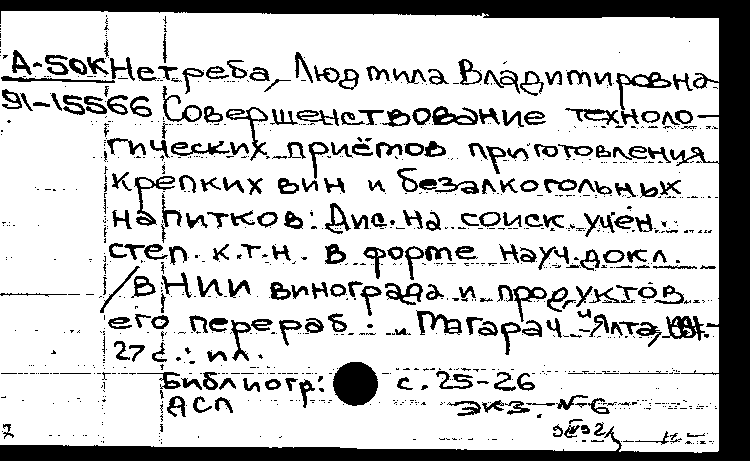 А-50К Нетреба, Людмила Владимировна
91-15566 Совершенствование техноло-
гических приёмов приготовления
крепких вин и безалкогольных
напитков: Дис. на соиск. учен.
степ. к.т.н. в форме науч. докл.
/ВНИИ винограда и продуктов
его перераб. "Магарач".- Ялта, 1991.-
27 с.: ил.
Библиогр: с. 25-26
АСП экз. № 6